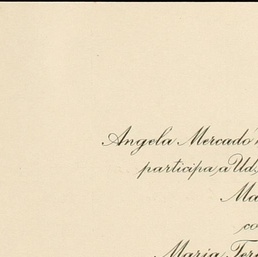 Angela Mercadó
participa, a Ud,
Ma
co
Maria Tere